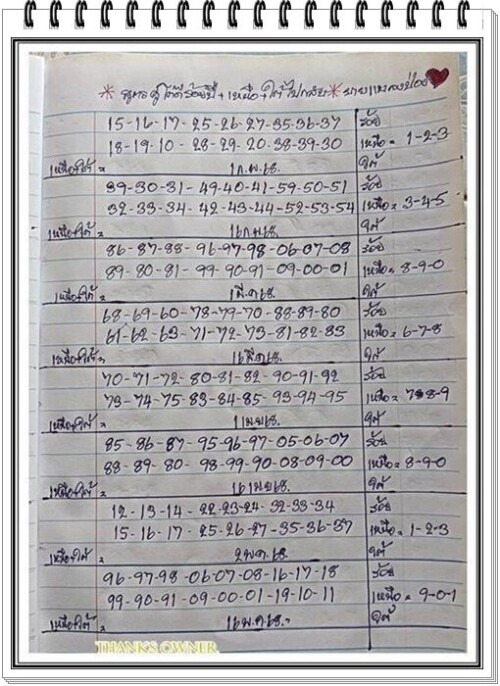 15-16-17- 25-26-27-35-36-37 ร้อย
18-19-10 - 28-29-20-38-39-30 เหนือ = 1-2-3
เหนือ+ใต้ = 1 ก.พ. 68. ใต้
39-30-31- 49-40-41-59-50-51 ร้อย
32-33-34- 42-43-44-52-53-54 เหนือ = 3-4-5
เหนือ+ใต้ = 16 ก.พ. 68. ใต้
86-87-88- 96-97-98-06-07-08 ร้อย
89-80-81- 99-90-91-09-00-01 เหนือ = 8-9-0
เหนือ+ใต้ = 1 มี.ค 68. ใต้
68-69-60-78-79-70-88-89-80 ร้อย
61-62-63-71-72-73-81-82-83 เหนือ = 6-7-8
เหนือ+ใต้ = 16 มี.ค 68. ใต้
70-71-72-80-81-82-90-91-92 ร้อย
73-74-75-83-84-85-93-94-95 เหนือ = 7-8-9
เหนือ+ใต้ = 1 เมย 68. ใต้
85-86-87-95-96-97-05-06-07 ร้อย
88-89-80-98-99-90-08-09-00 เหนือ = 8-9-0
เหนือ+ใต้ = 16 เมย 68. ใต้
12-13-14- 22-23-24-32-33-34 ร้อย
15-16-17-25-26-27-35-36-37 เหนือ = 1-2-3
เหนือ+ใต้ = 2 พ.ค. 68 ใต้
96-97-98-06-07-08-16-17-18 ร้อย
99-90-91-09-00-01-19-10-11 เหนือ = 9-0-1
เหนือ+ใต้ = 16 พ.ค. 68. ใต้
THANKS OWNER